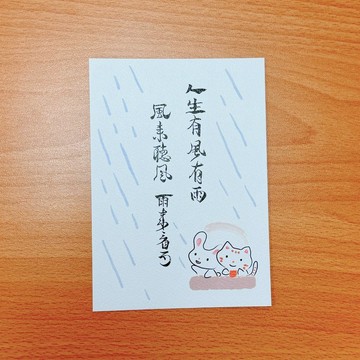 人生有風有雨
風来聽風 雨来看雨